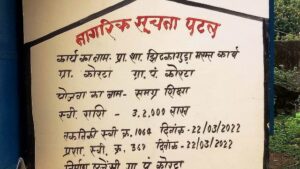 नागरिक सूचना पटल
कार्य का नाम- प्रा. शा. झिटकागुडा मरम्मत कार्य
ग्रा. कोरटा ग्रा. पं. कोरटा
योजना का नाम- समग्र शिक्षा
स्वी. राशि - 3.2,000 लाख
तकनिकी स्वी. क्र. 1064 दिनांक -22/03/2022
प्रशा. स्वी. क्र. 367 दिनांक -22/03/2022
निर्माण एजेंसी ग्रा. पं. कोरटा